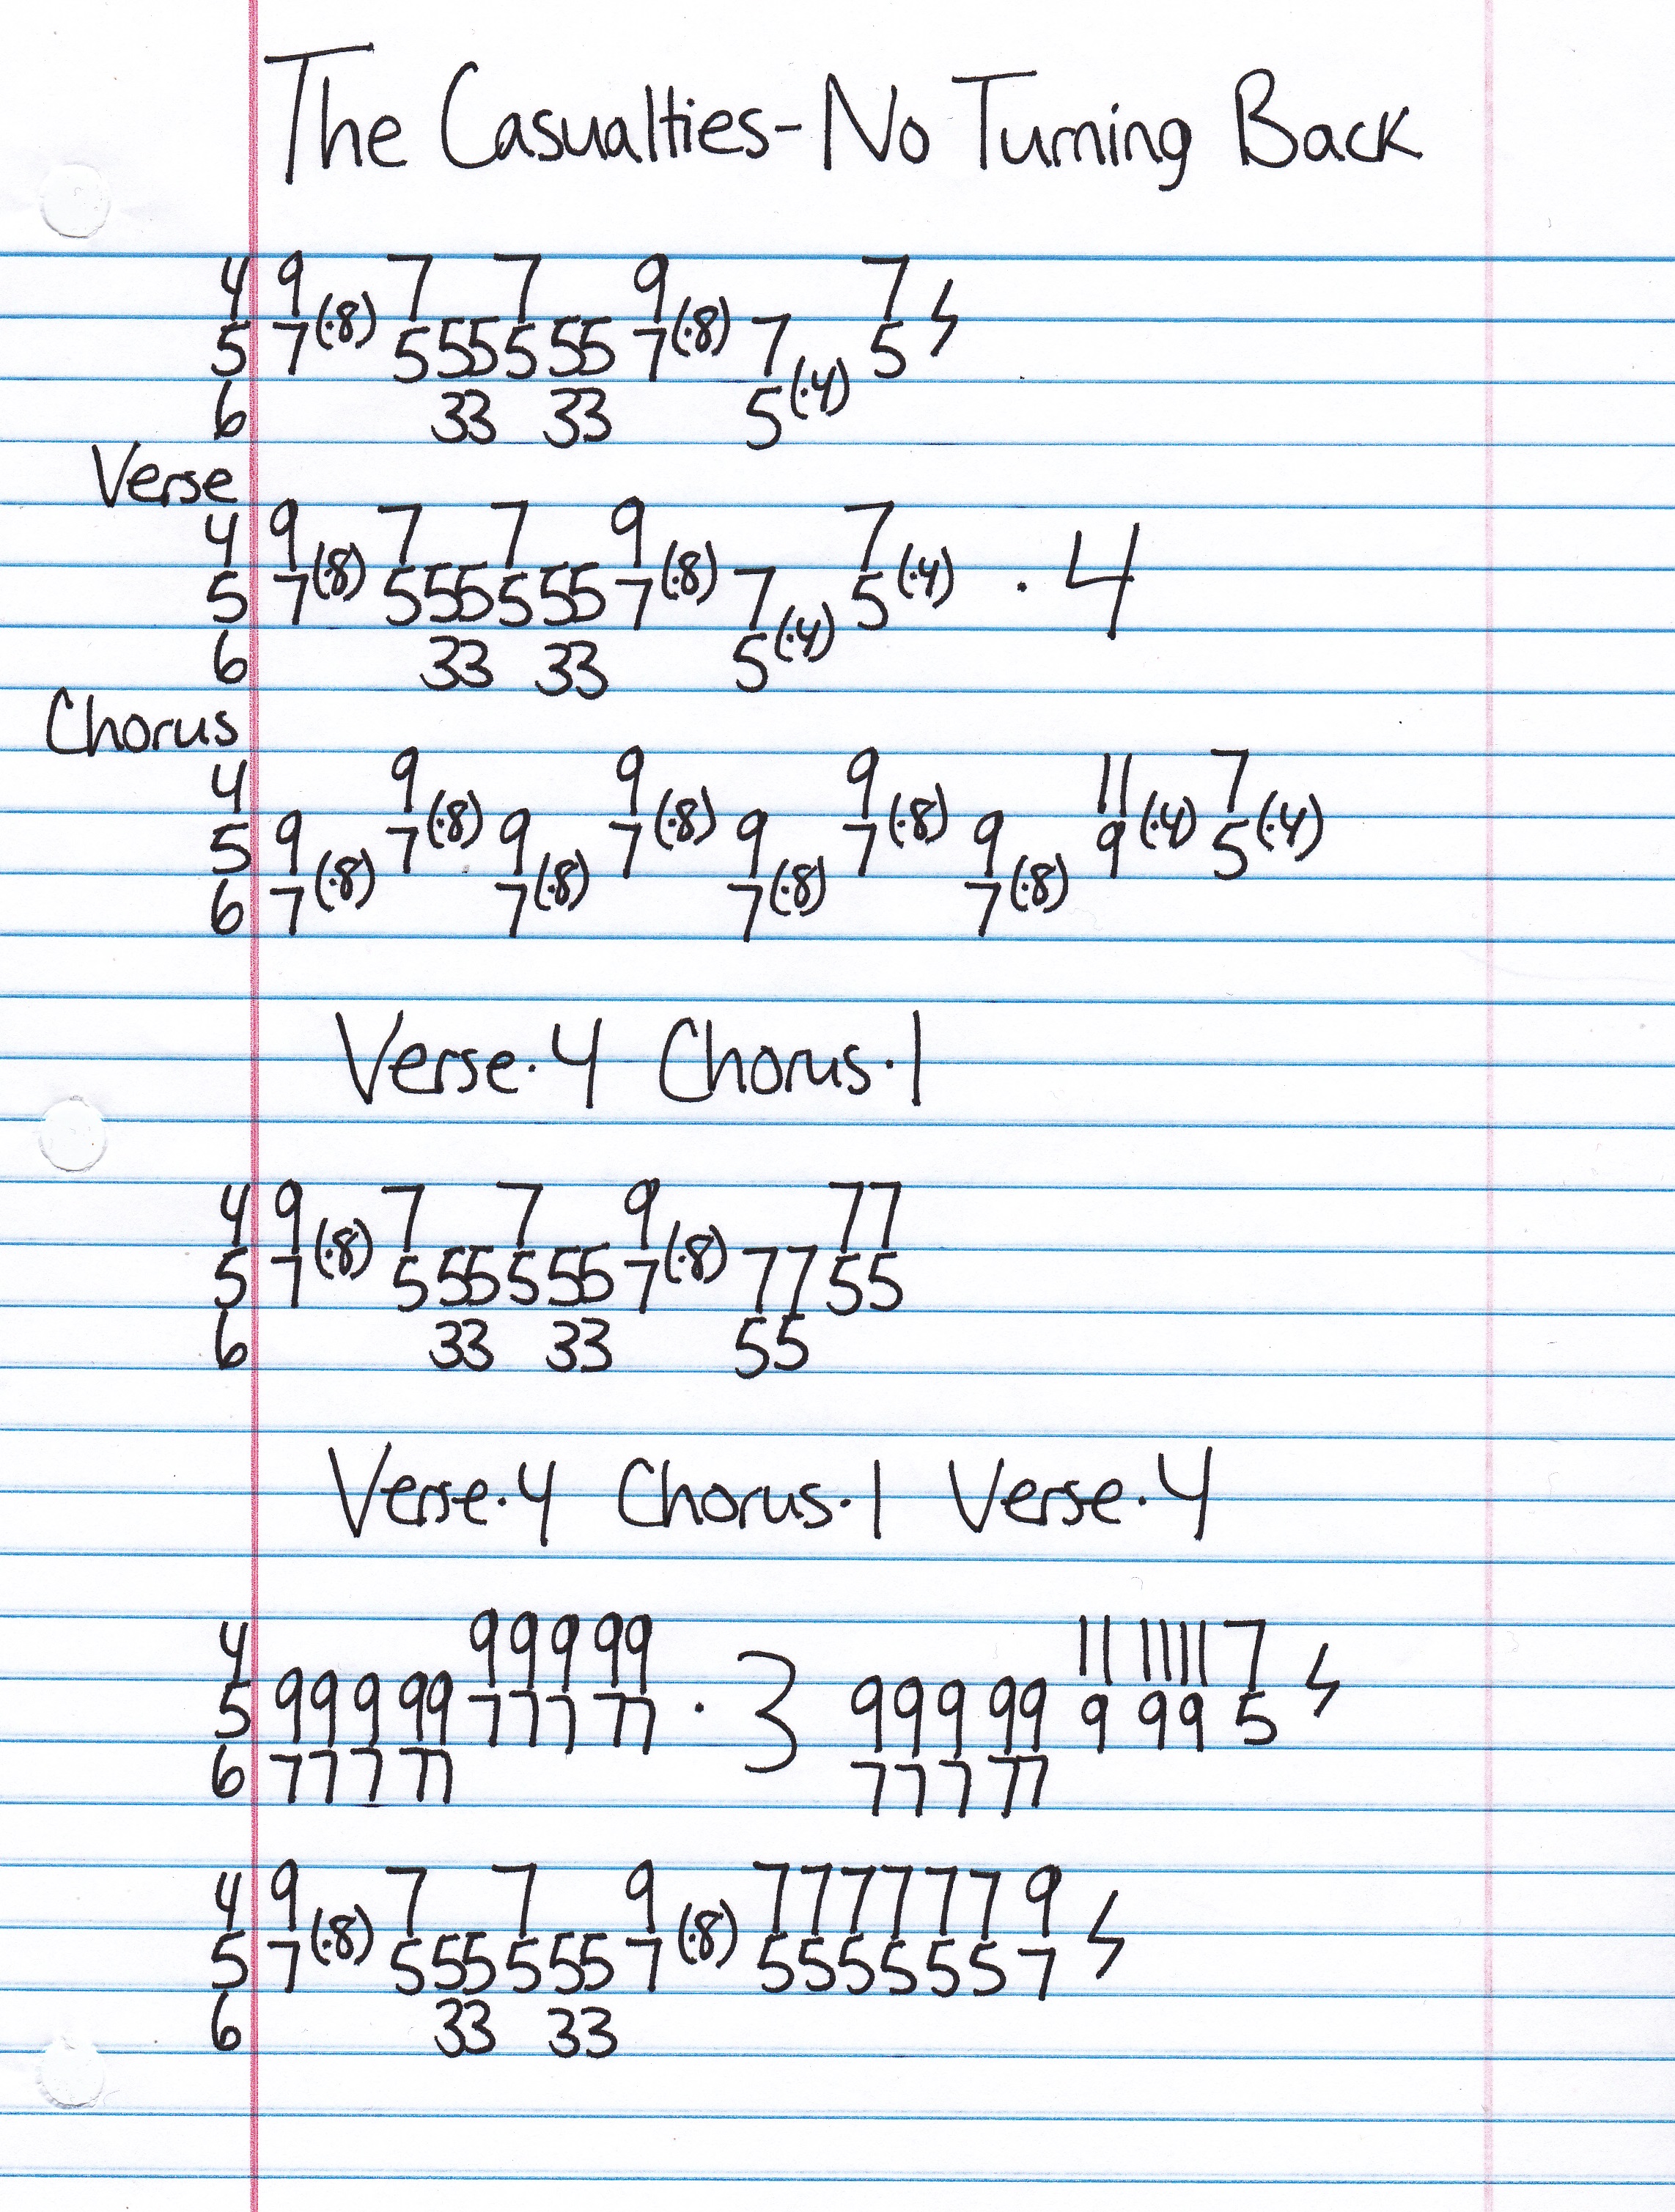 The Casualties-No Turning Back
4 9 7 7 9 7
5 7(·8) 5 55 5 55 7(·8) 7 5
6 33 33 5(·4)
Verse
4 9 7 7 9 7
5 7(·8) 5 55 5 55 7(·8) 7 5(·4) · 4
6 33 33 5(·4)
Chorus
4 9 9 9 11 7
5 9 7(·8) 9 7(·8) 9 7(·8) 9 9(·4) 5(·4)
6 7(·8) 7(·8) 7(·8) 7(·8)
Verse·4 Chorus·1
4 9 7 7 9 77
5 7(·8) 5 55 5 55 7(·8) 77 55
6 33 33 55
Verse·4 Chorus·1 Verse·4
4 99 9 99 11 1111 7
5 99 9 99 77 7 77 · 3 99 9 99 9 99 5
6 77 7 77 77 7 77
4 9 7 7 9 777777 9
5 7(·8) 5 55 5 55 7(·8) 555555 7
6 33 33